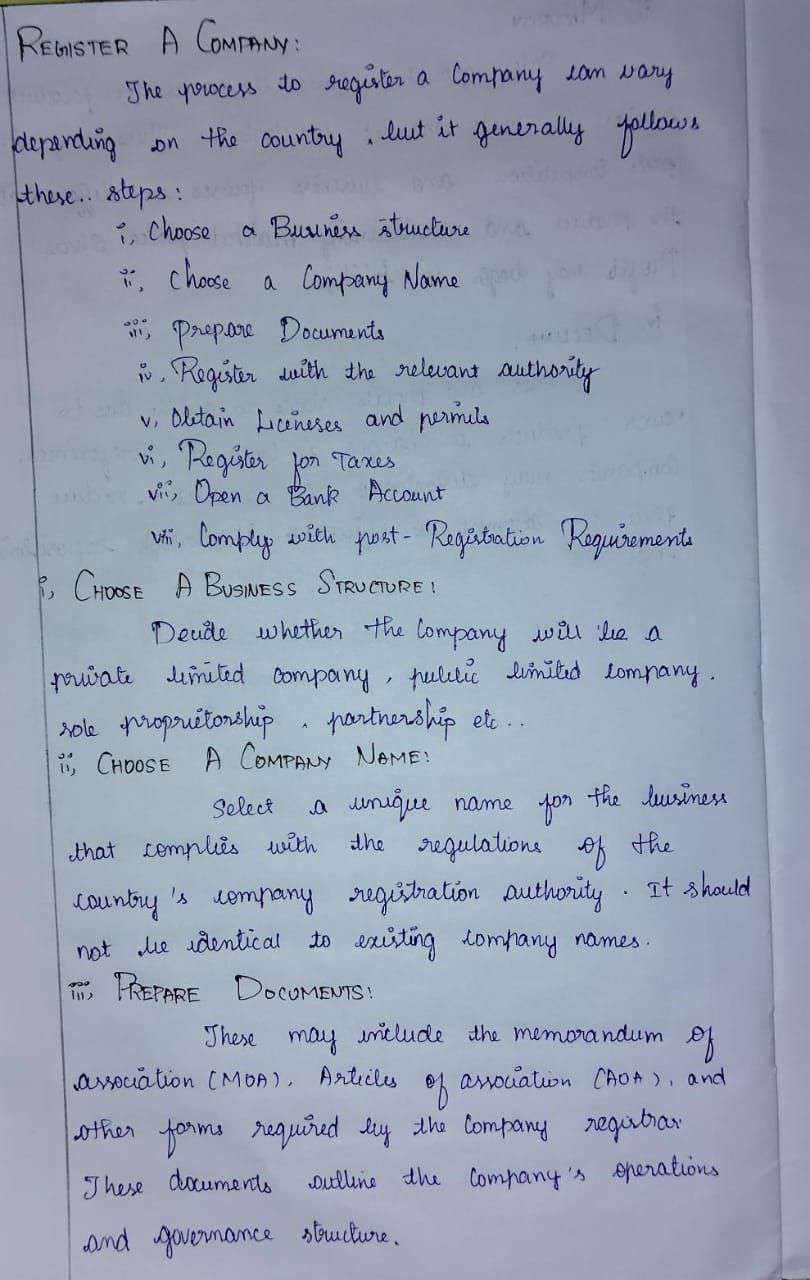 REGISTER A COMPANY:
The process to register a Company can vary
depending on the country, but it generally follows
these.. steps:
i, Choose a Business structure
ii, Choose a Company Name
iii, Prepare Documents
iv, Register with the relevant authority
v, Obtain Liceneses and permits
vi, Register for Taxes
vii, Open a Bank Account
viii, Comply with post-Registration Requirements
i, CHOOSE A BUSINESS STRUCTURE:
Decide whether the Company will be a
private limited company, public limited company.
sole proprietorship, partnership etc..
ii, CHOOSE A COMPANY NAME:
Select a unique name for the business
that complies with the regulations of the
country's company registration authority. It should
not be identical to existing company names.
iii, PREPARE DOCUMENTS:
These may include the memorandum of
association (MOA), Articles of association (AOA), and
other forms required by the Company registrar
These documents outline the Company's operations
and governance structure.